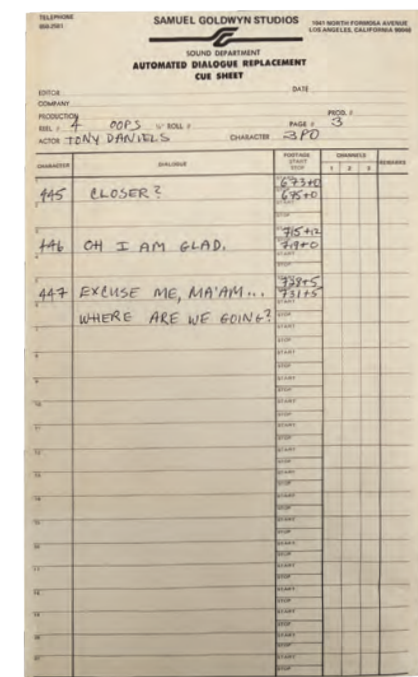 TELEPHONE
SAMUEL GOLDWYN STUDIOS
1041 NORTH FORMOSA AVENUE
LOS ANGELES, CALIFORNIA 90046
SOUND DEPARTMENT
AUTOMATED DIALOGUE REPLACEMENT
CUE SHEET
EDITOR DATE
COMPANY
PRODUCTION PROD. #
REEL # 4 OOPS ROLL # PAGE # 3
ACTOR TONY DANIELS CHARACTER 3PO
CHARACTER DIALOGUE FOOTAGE START STOP CHANNELS 1 2 3 REMARKS
445 CLOSER? 673+0
675+0
446 OH I AM GLAD. 715+12
719+0
447 EXCUSE ME, MA'AM... 728+5
731+5
WHERE ARE WE GOING?